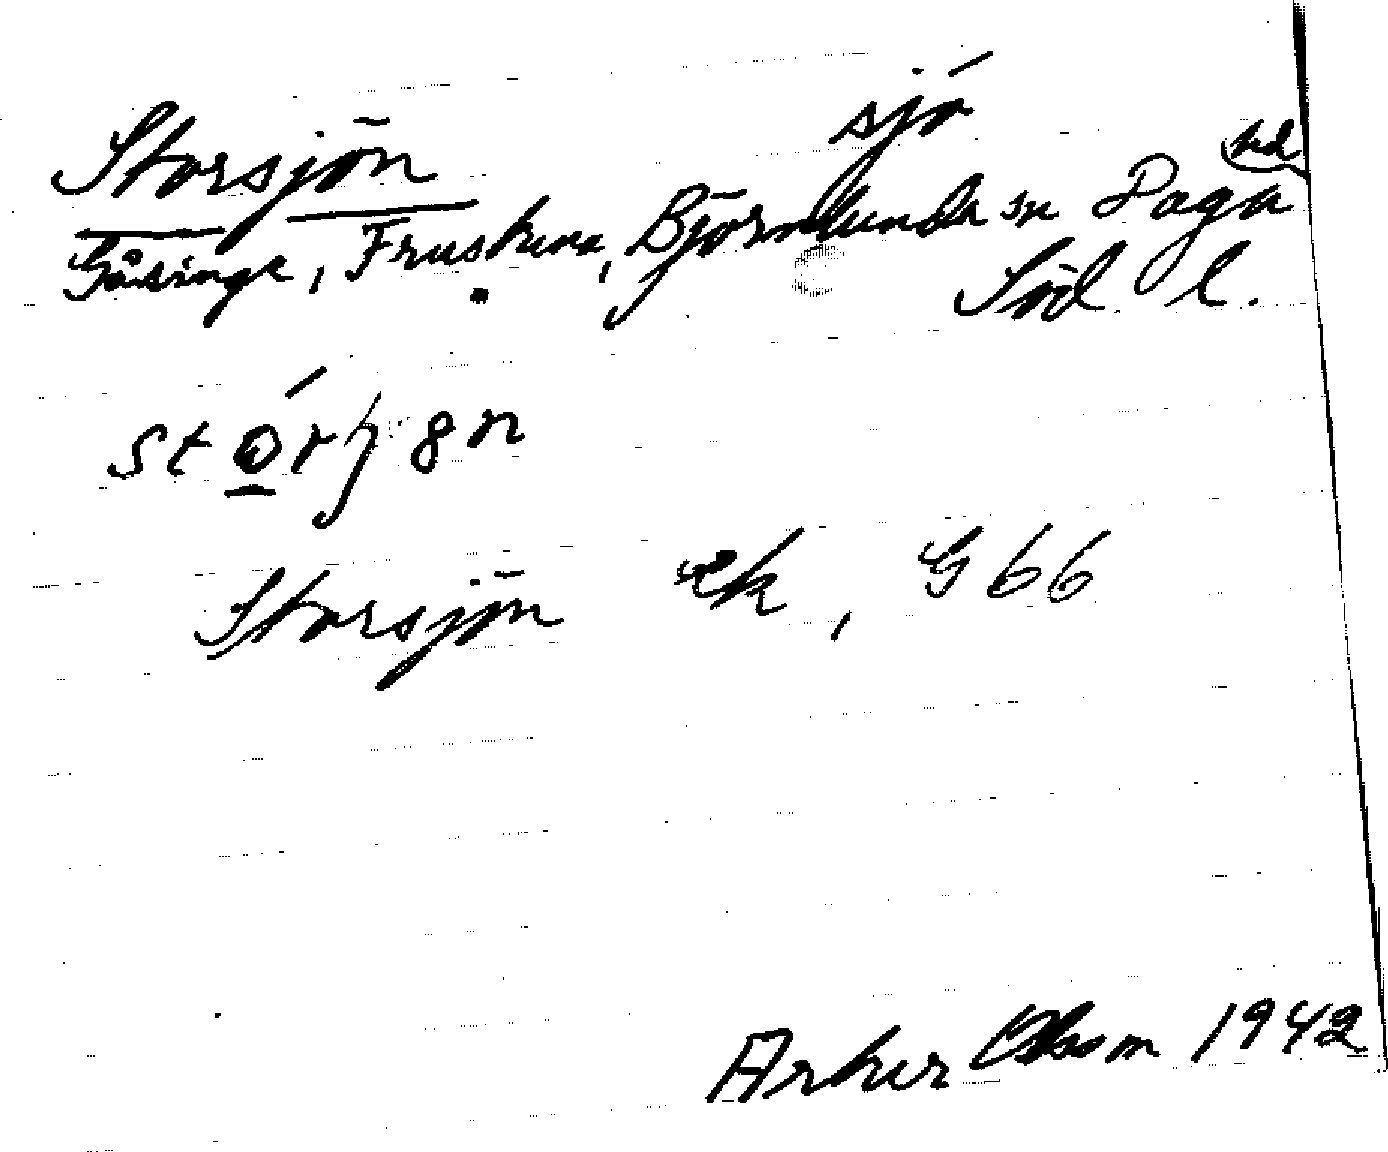 sjö
Storsjön
Gåsinge, Frustuna, Björnlunda sn Daga hd
Söd l.
Storsjön ek, G 66
Artur Olsson 1942